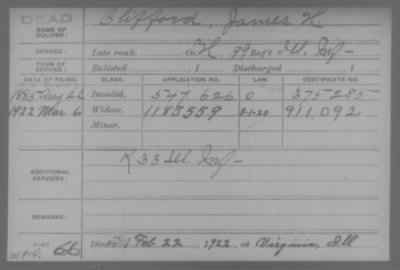 DEAD
NAME OF SOLDIER: Clifford, James H.
SERVICE: Late rank, Co. H, 99 Reg't Ill. Inf-
TERM OF SERVICE: Enlisted , 1 Discharged , 1
DATE OF FILING. CLASS. APPLICATION NO. LAW. CERTIFICATE NO.
1885 Aug 22 Invalid, 547 626 0 375 285
1922 Mar 6 Widow, 1185559 5-1-20 911,092
Minor,
ADDITIONAL SERVICES: K 33 Ill. Inf-
REMARKS:
Died Feb 22, 1922, at Virginia, Ill